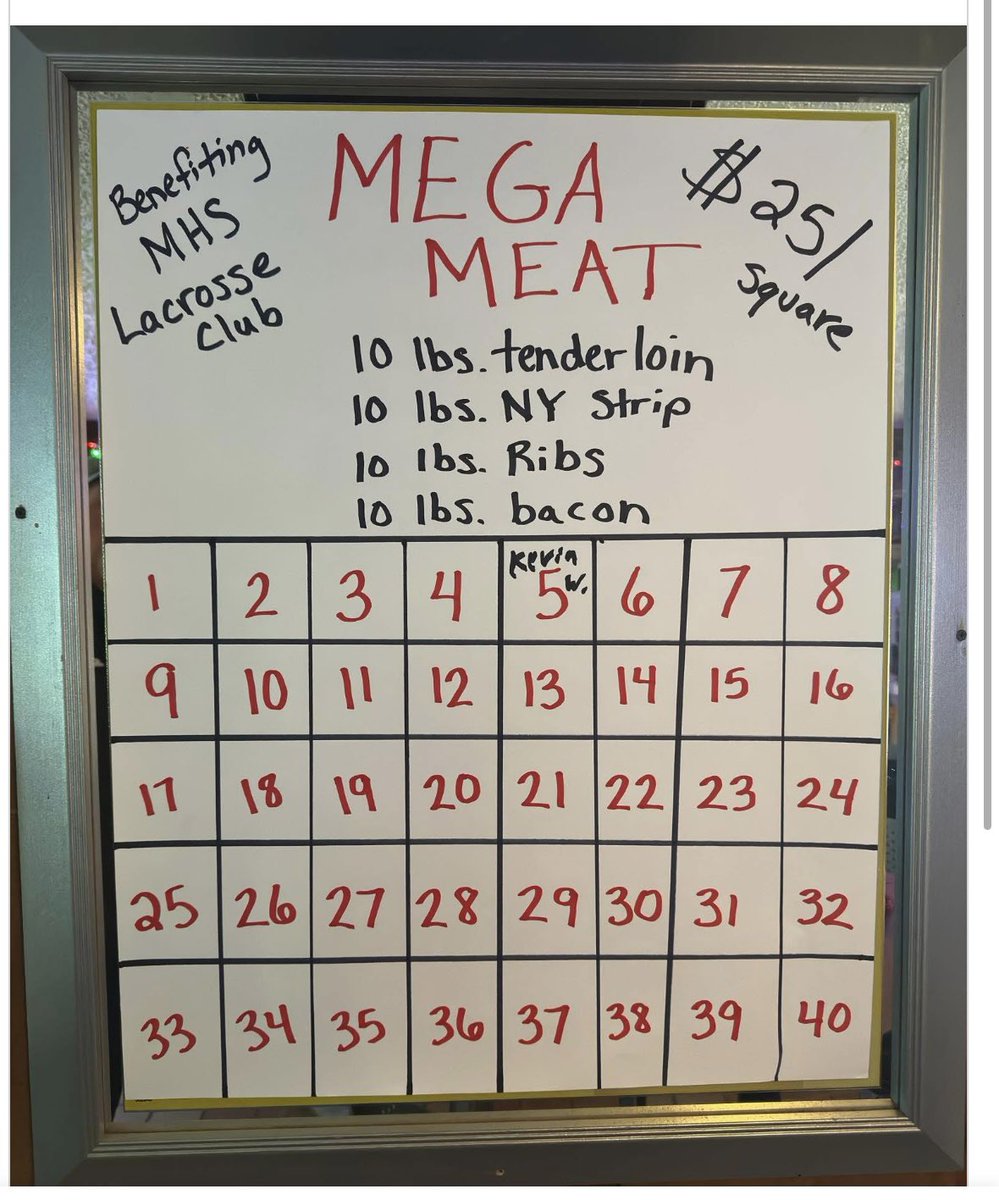 Benefiting
MHS
Lacrosse
Club
MEGA
MEAT
$25/
square
10 lbs. tenderloin
10 lbs. NY Strip
10 lbs. Ribs
10 lbs. bacon
1 2 3 4 Kevin W. 5 6 7 8
9 10 11 12 13 14 15 16
17 18 19 20 21 22 23 24
25 26 27 28 29 30 31 32
33 34 35 36 37 38 39 40